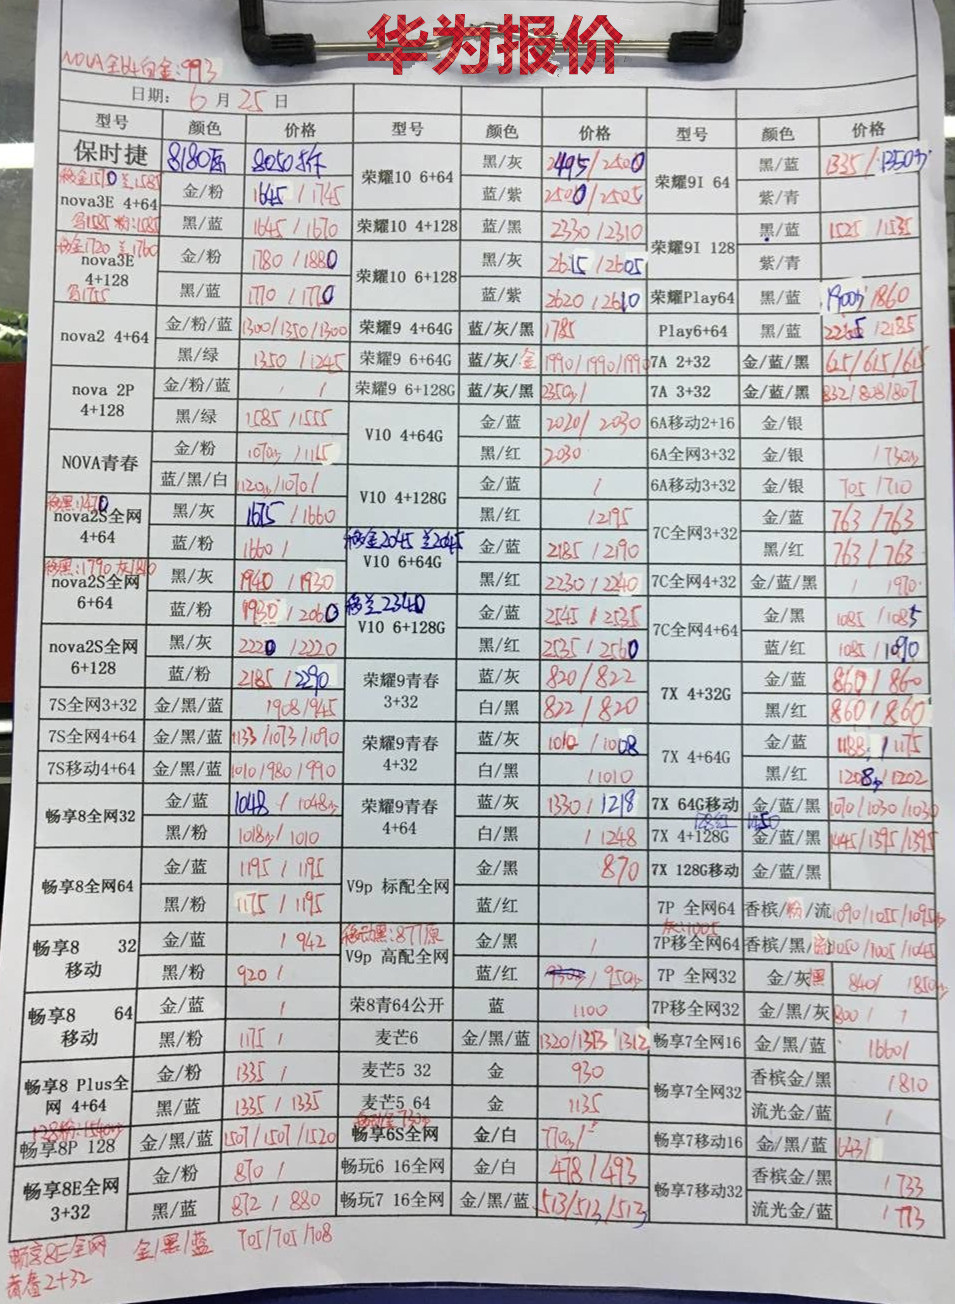 华为报价
NOVA全64白金:993
日期: 6月25日
型号 颜色 价格 型号 颜色 价格 型号 颜色 价格
保时捷 8180瓦 8050
移金1570 兰1585
nova3E 4+64
金/粉 1645/1745
黑/蓝 1645/1670
移金1720 兰1760
nova3E 4+128
金/粉 1780/1880
黑/蓝 1770/1770
nova2 4+64
金/粉/蓝 1300/1350/1300
黑/绿 1350/1245
nova 2P 4+128
金/粉/蓝 / /
黑/绿 1585/1555
NOVA青春
金/粉 1070/1155
蓝/黑/白 1120/1070/
移黑:1470
nova2S全网 4+64
黑/灰 1675/1660
蓝/粉 1660/
移黑:1790
nova2S全网 6+64
黑/灰 1940/1930
蓝/粉 1930/2060
nova2S全网 6+128
黑/灰 2220/2220
蓝/粉 2185/2290
7S全网3+32 金/黑/蓝 1908/945
7S全网4+64 金/黑/蓝 1133/1073/1090
7S移动4+64 金/黑/蓝 1010/980/990
畅享8全网32
金/蓝 1048/1048
黑/粉 1018/1010
畅享8全网64
金/蓝 1195/1195
黑/粉 1175/1195
畅享8 32 移动
金/蓝 /942
黑/粉 920/
畅享8 64 移动
金/蓝 /
黑/粉 1175/
畅享8 Plus全网 4+64
金/粉 1335/
黑/蓝 1335/1335
128粉:1540
畅享8P 128 金/黑/蓝 1507/1507/1520
畅享8E全网 3+32
金/粉 870/
黑/蓝 872/880
畅享8E全网 金/黑/蓝 705/705/708
2+32
荣耀10 6+64
黑/灰 2495/2500
蓝/紫 2500/2505
荣耀10 4+128 蓝/黑 2330/2310
荣耀10 6+128
黑/灰 2615/2605
蓝/紫 2620/2610
荣耀9 4+64G 蓝/灰/黑 1785
荣耀9 6+64G 蓝/灰/金 1990/1990/1990
荣耀9 6+128G 蓝/灰/黑 2350/
V10 4+64G
金/蓝 2020/2030
黑/红 2030
V10 4+128G
金/蓝 /
黑/红 /2195
移金2045 兰2045
V10 6+64G
金/蓝 2185/2190
黑/红 2230/2240
移兰2340
V10 6+128G
金/蓝 2545/2535
黑/红 2535/2560
荣耀9青春 3+32
蓝/灰 820/822
白/黑 822/820
荣耀9青春 4+32
蓝/灰 1010/1008
白/黑 /1010
荣耀9青春 4+64
蓝/灰 1330/1218
白/黑 /1248
V9p 标配全网
金/黑 870
蓝/红
移动黑:877原
V9p 高配全网
金/黑 /
蓝/红 /950
荣8青64公开 蓝 1100
麦芒6 金/黑/蓝 1320/1313/1312
麦芒5 32 金 930
麦芒5 64 金 1135
畅享6S全网 金/白 770/
畅玩6 16全网 金/白 478/493
畅玩7 16全网 金/黑/蓝 513/513/513
荣耀9I 64
黑/蓝 1335/1350
紫/青
荣耀9I 128
黑/蓝 1525/1535
紫/青
荣耀Play64 黑/蓝 1900/1860
Play6+64 黑/蓝 /2185
7A 2+32 金/蓝/黑 615/615/615
7A 3+32 金/蓝/黑 832/808/807
6A移动2+16 金/银
6A全网3+32 金/银 /730
6A移动3+32 金/银 705/710
7C全网3+32
金/蓝 763/763
黑/红 763/763
7C全网4+32 金/蓝/黑 / 1970
7C全网4+64
金/黑 1085/1085
蓝/红 1085/1090
7X 4+32G
金/蓝 860/860
黑/红 860/860
7X 4+64G
金/蓝 1188/1175
黑/红 1208/1202
7X 64G移动 金/蓝/黑 1070/1030/1030
7X 4+128G 金/蓝/黑 1445/1395/1395
7X 128G移动 金/蓝/黑
7P 全网64 香槟/粉/流 1090/1055/1095
灰:1005
7P移全网64 香槟/黑/流 1050/1005/1045
7P 全网32 金/灰黑 840/ 1850
7P移全网32 金/黑/灰 800/ /
畅享7全网16 金/黑/蓝 1660/
畅享7全网32
香槟金/黑 /810
流光金/蓝 /
畅享7移动16 金/黑/蓝 643/
畅享7移动32
香槟金/黑 /733
流光金/蓝 /773